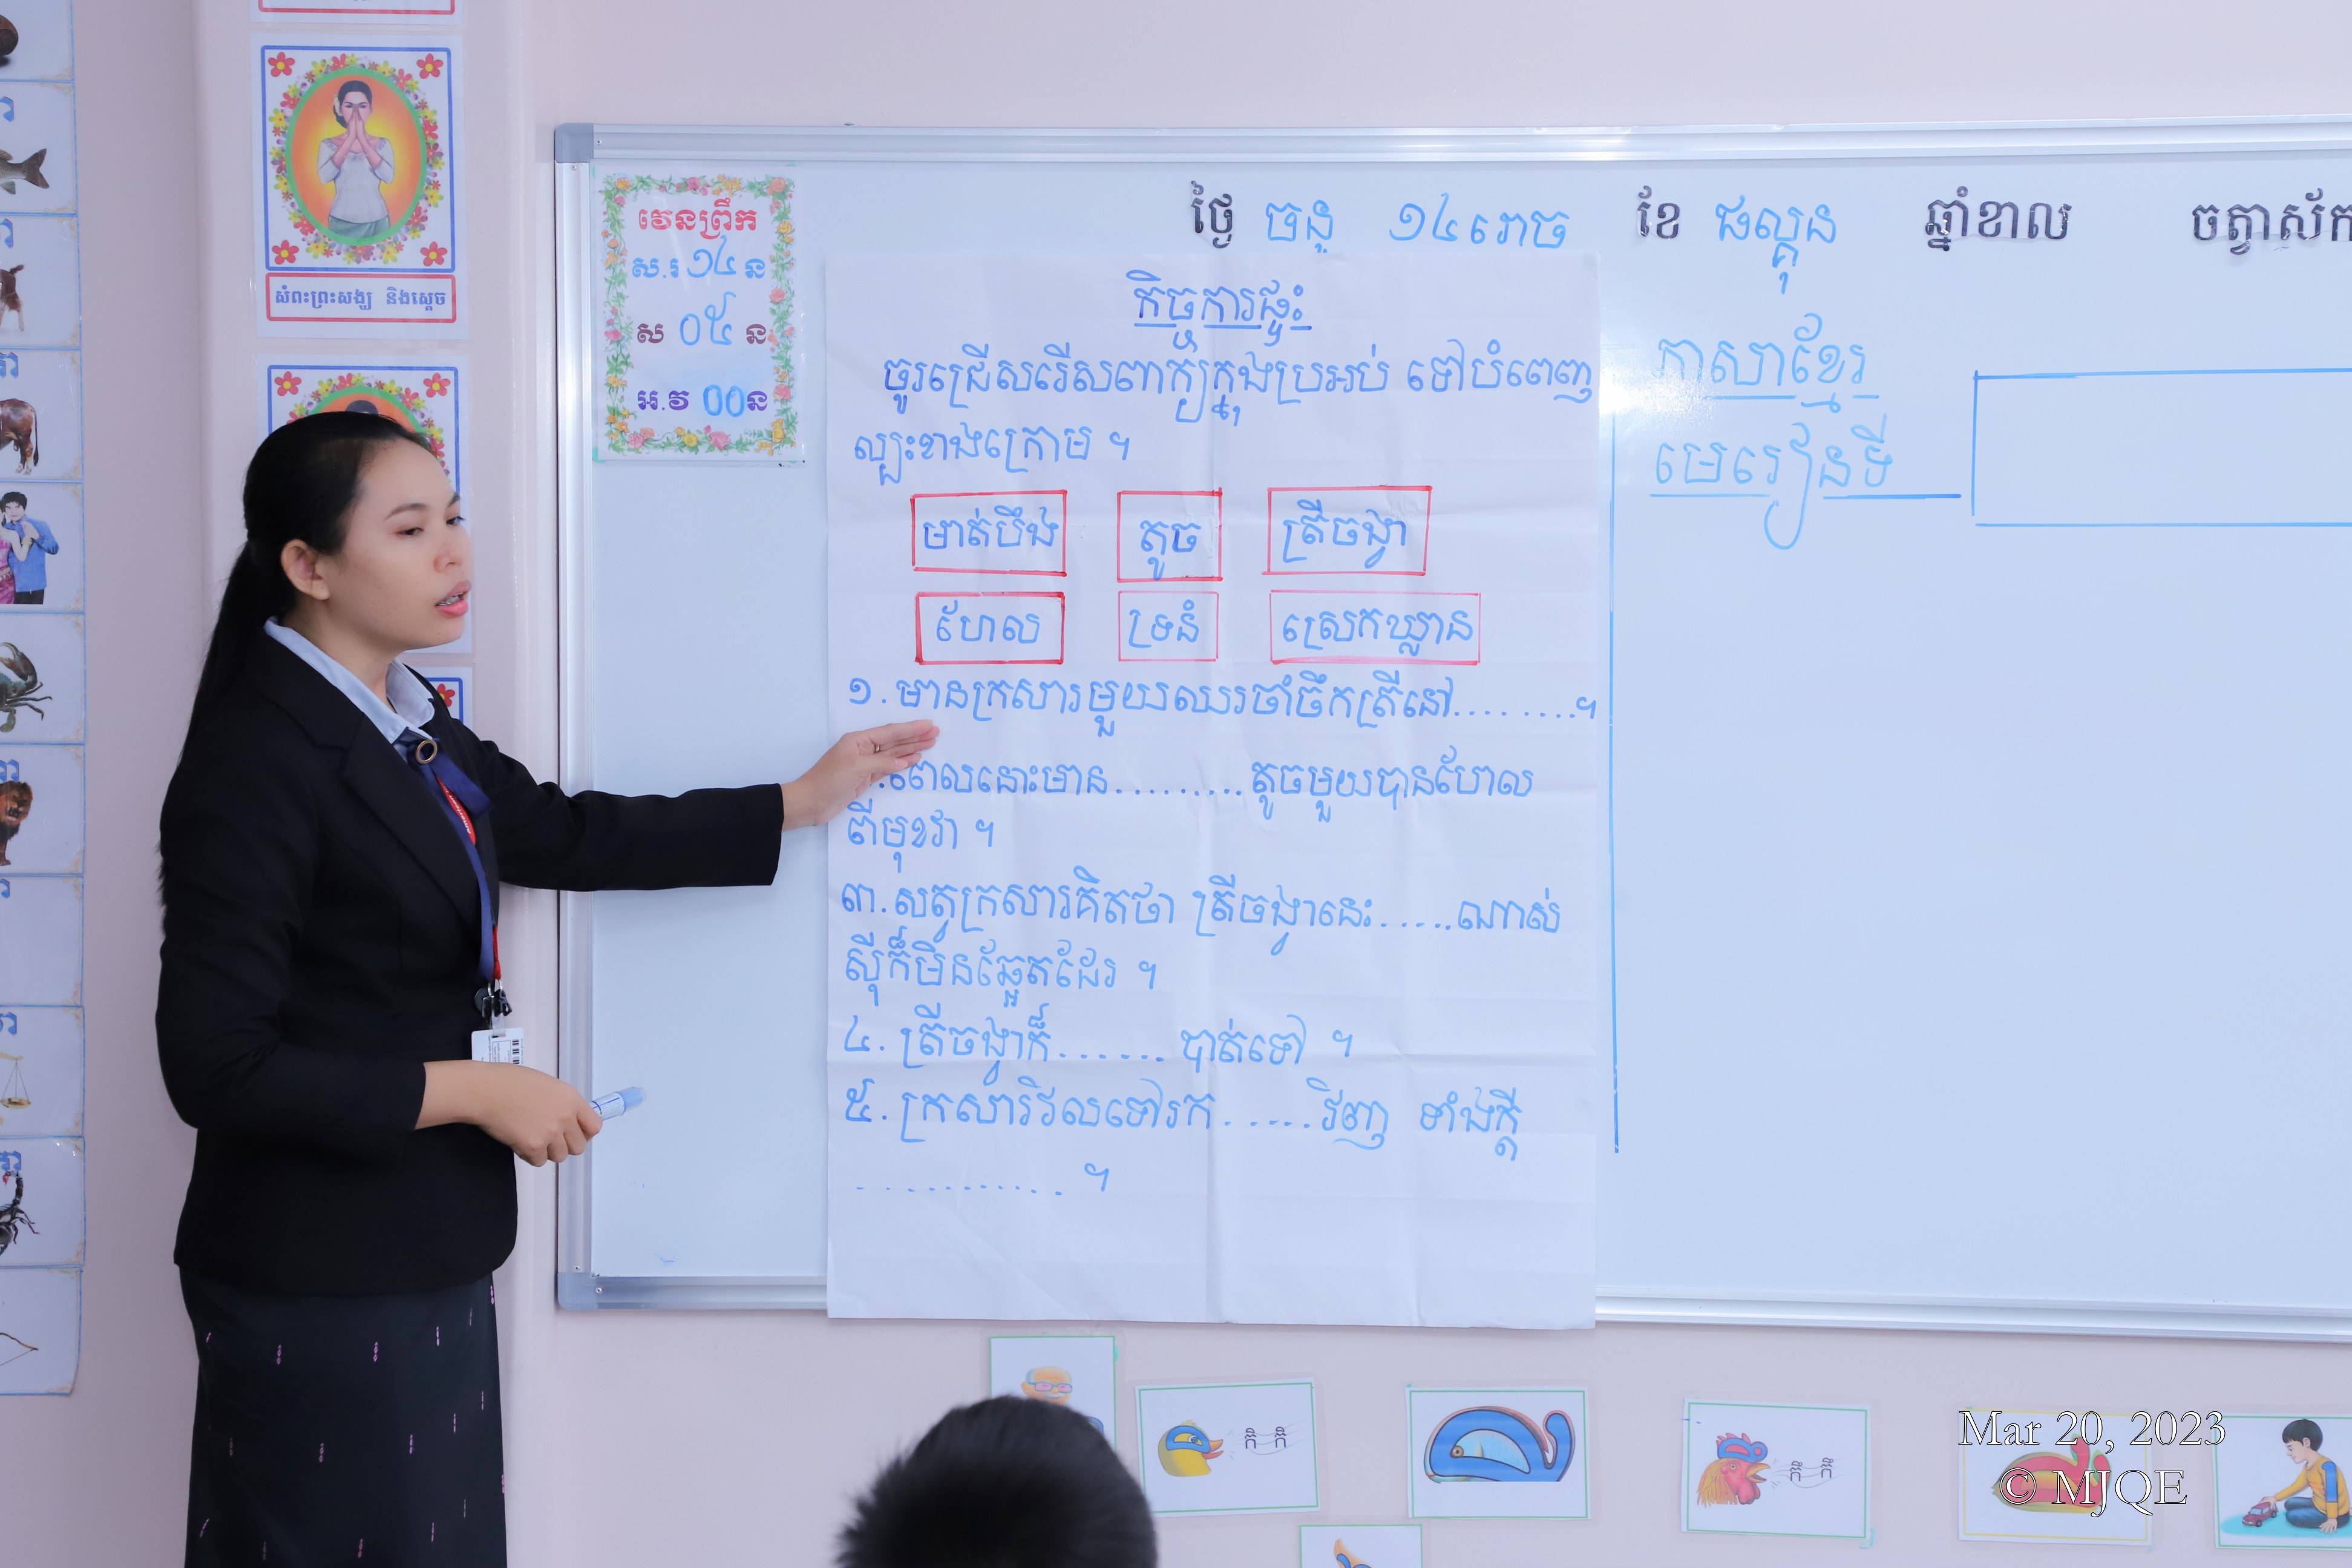 សំពះព្រះសង្ឃ និងស្តេច
វេនព្រឹក
ស.រ ១៤ ន
ស ០៥ ន
អ.វ ០០ ន
ថ្ងៃ ចន្ទ ១៤ រោច ខែ ផល្គុន ឆ្នាំខាល ចត្វាស័ក
ភាសាខ្មែរ
មេរៀនទី
កិច្ចការផ្ទះ
ចូរជ្រើសរើសពាក្យក្នុងប្រអប់ ទៅបំពេញ
ល្បះខាងក្រោម ។
មាត់បឹង តូច ត្រីចង្វា
ហែល ទ្រនំ ស្រេកឃ្លាន
១. មានក្រសារមួយឈរចាំចឹកត្រីនៅ.........។
.ពេលនោះមាន.........តូចមួយបានហែល
ពីមុខវា ។
៣. សត្វក្រសារគិតថា ត្រីចង្វានេះ......ណាស់
ស៊ីក៏មិនឆ្អែតដែរ ។
៤. ត្រីចង្វាក៏....... បាត់ទៅ ។
៥. ក្រសារវិលទៅរក......វិញ ទាំងក្តី
........... ។
កិ កិ
Mar 20, 2023
© MJQE